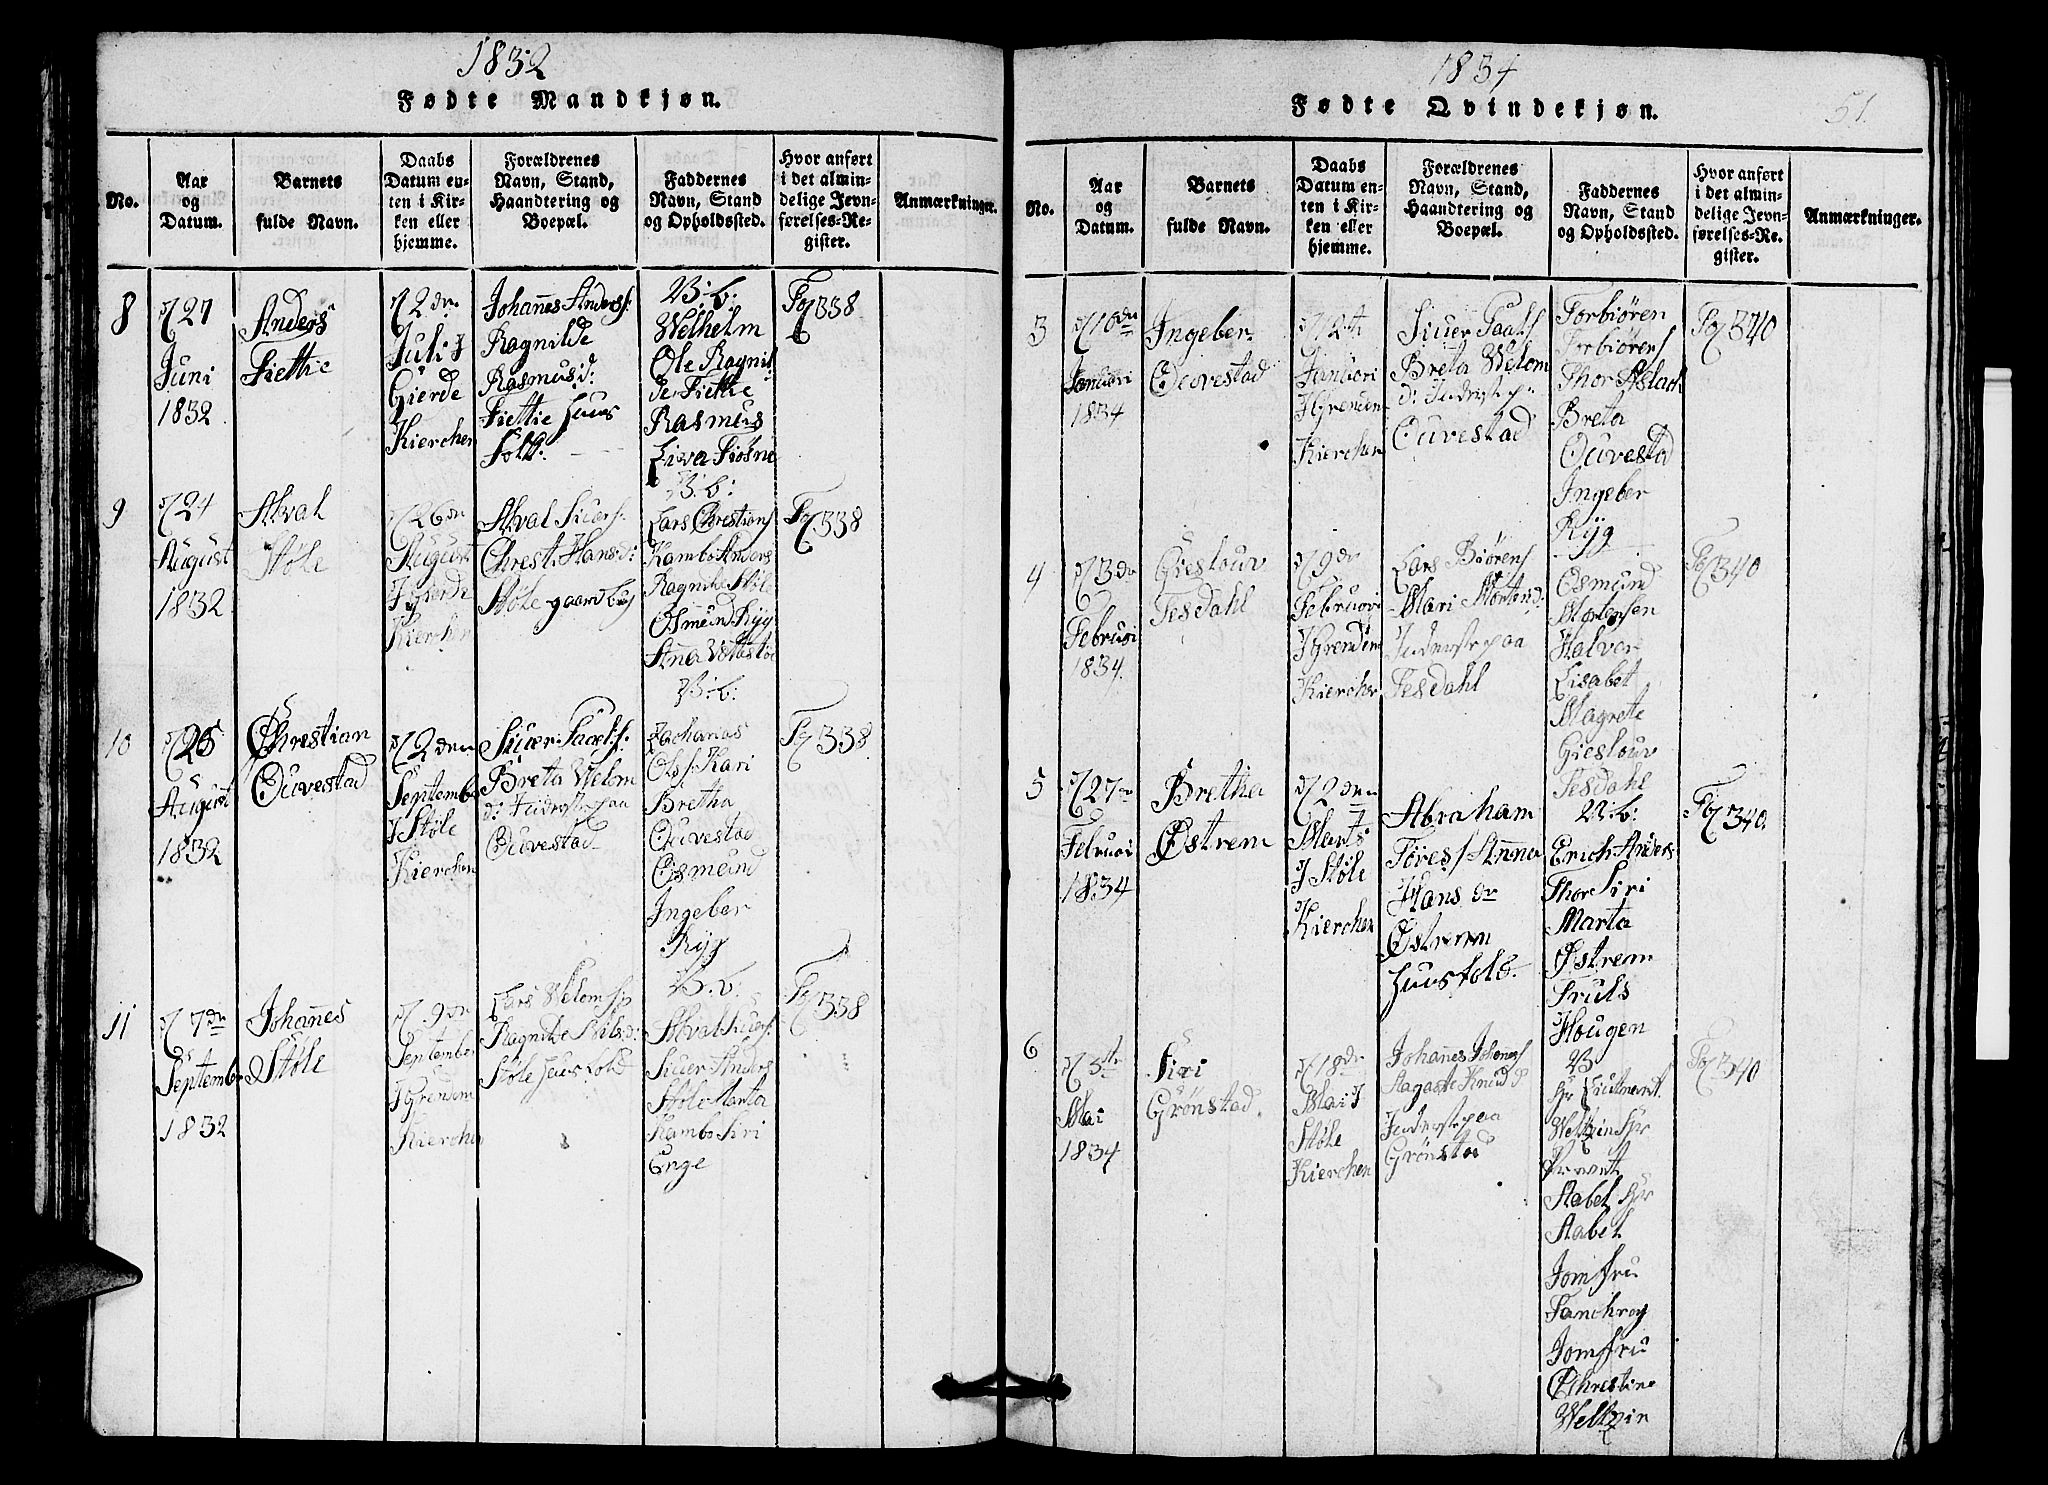 1832
Fødte Mandkjøn.
No.
Aar
og
Datum.
Barnets
fulde Navn.
Daabs
Datum en-
ten i Kir-
ken eller
hjemme.
Forældrenes
Navn, Stand,
Haandtering og
Boepæl.
Faddernes
Navn, Stand
og Opholdssted.
Hvor anført
i det almin-
delige Jevn-
førelses-Re-
gister.
Anmærkninger.
8
27
Juni
1832
Anders
Fiettie
2 dn
Juli J
Gierde
Kierchen
Johannes Anders:
Ragnilde
Rasmusd:
Fiettie Huus
folk:
B: b:
Welhelm
Ole Ragnil
de Fiettie
Rasmus
Liva Fiøsne
338
9
24
August
1832
Akval
Støle
26 dn
August
J Gierde
Kierchen
Akval Siuers:
Chrest: Hansd:
Støle gaardbrug
B: b:
Lars Chrestians
Kambo Anders
Ragnilde Støle
Osmund Ryg
Anna
338
10
25
August
1832
Chrestian
Ouvestad
2 den
Septembe
J Støle
Kierchen
Siuer Paals:
Breta Welom
d: Inderst paa
Ouvestad
B: b:
Zacharias
Ols: Kari
Bretha
Ouvestad
Osmund
Ingeber
Ryg
338
11
7 dn
Septembe
1832
Johannes
Støle
9 dn
September
J Grendem
Kierchen
Lars Welomss
Ragnilde Nilsd:
Støle Huusfolk
B: b:
Akval Siuers:
Siuer Anders
Støle Marta
Kambo Siri
Enge
338
1834
Fødte Qvindekjøn.
51.
No.
Aar
og
Datum.
Barnets
fulde Navn.
Daabs
Datum en-
ten i Kir-
ken eller
hjemme.
Forældrenes
Navn, Stand,
Haandtering og
Boepæl.
Faddernes
Navn, Stand
og Opholdssted.
Hvor anført
i det almin-
delige Jevn-
førelses-Re-
gister.
Anmærkninger.
3
10 dn
Januari
1834
Ingeber
Ouvestad
12 te
Januori
J Grendem
Kierchen
Siuer Paals
Breta Welom
d: Inderst p:
Ouvestad
Torbiören
Torbiörens
Thor Aslach
Breta
Ouvestad
Ingeber
Ryg
340
4
3 dn
Februai
1834.
Gieslouv
Tesdahl
9 dn
Februori
J Grendem
Kierchen
Lars Biörens
Mari Mortensd:
Inderst paa
Tesdahl
Osmund
Mortensen
Halver
Lisabet
Magrete
Gieslouv
Tesdahl
340
5
27 n
Februai
1834
Bretha
Østrem
2 den
Marts
J Støle
Kierchen
Abraham
Töres: Anna
Hans dr
Østrem
Huusfolk.
B: b:
Erich Anders
Thor Siri
Marta
Østrem
Truls
Hougen
340.
6
5 te
Mai
1834
Siri
Grönstad.
18 dn
Mai J
Støle
Kierchen
Johannes Johans
Aagaate Knud d
Inderst paa
Grönstad
B
Hr Lieutnant.
Weltzin
Stabel
Stabel
Jomfru
Jomfru
Chrestine
Weltzin
340